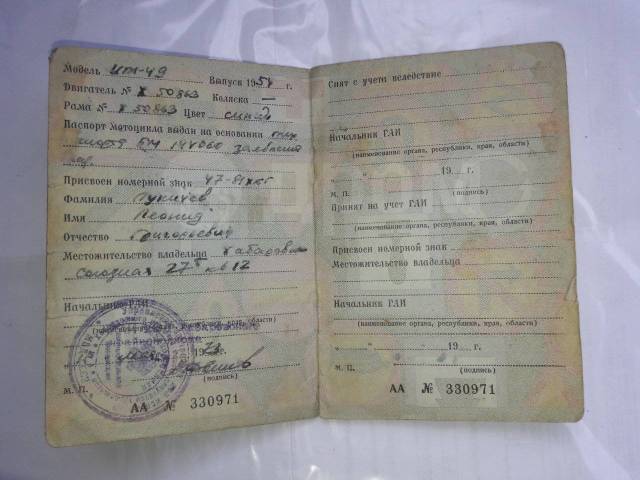 Модель ИЖ-49 Выпуск 195 г.
Двигатель № Х 50863 Коляска —
Рама № Х 50863 Цвет синий
Паспорт мотоцикла выдан на основании
Присвоен номерной знак 47-81
Фамилия
Имя Леонид
Отчество Григорьевич
Местожительство владельца
Союзная 27 кв 12
Начальник ГАИ
М. П. (подпись)
АА № 330971
Снят с учета вследствие
Начальник ГАИ
(наименование органа, республики, края, области)
" " 19 г.
М. П. (подпись)
Принят на учет ГАИ
(наименование органа, республики, края, области)
Присвоен номерной знак
Местожительство владельца
Начальник ГАИ
(наименование органа, республики, края, области)
" " 19 г.
М. П. (подпись)
АА № 330971